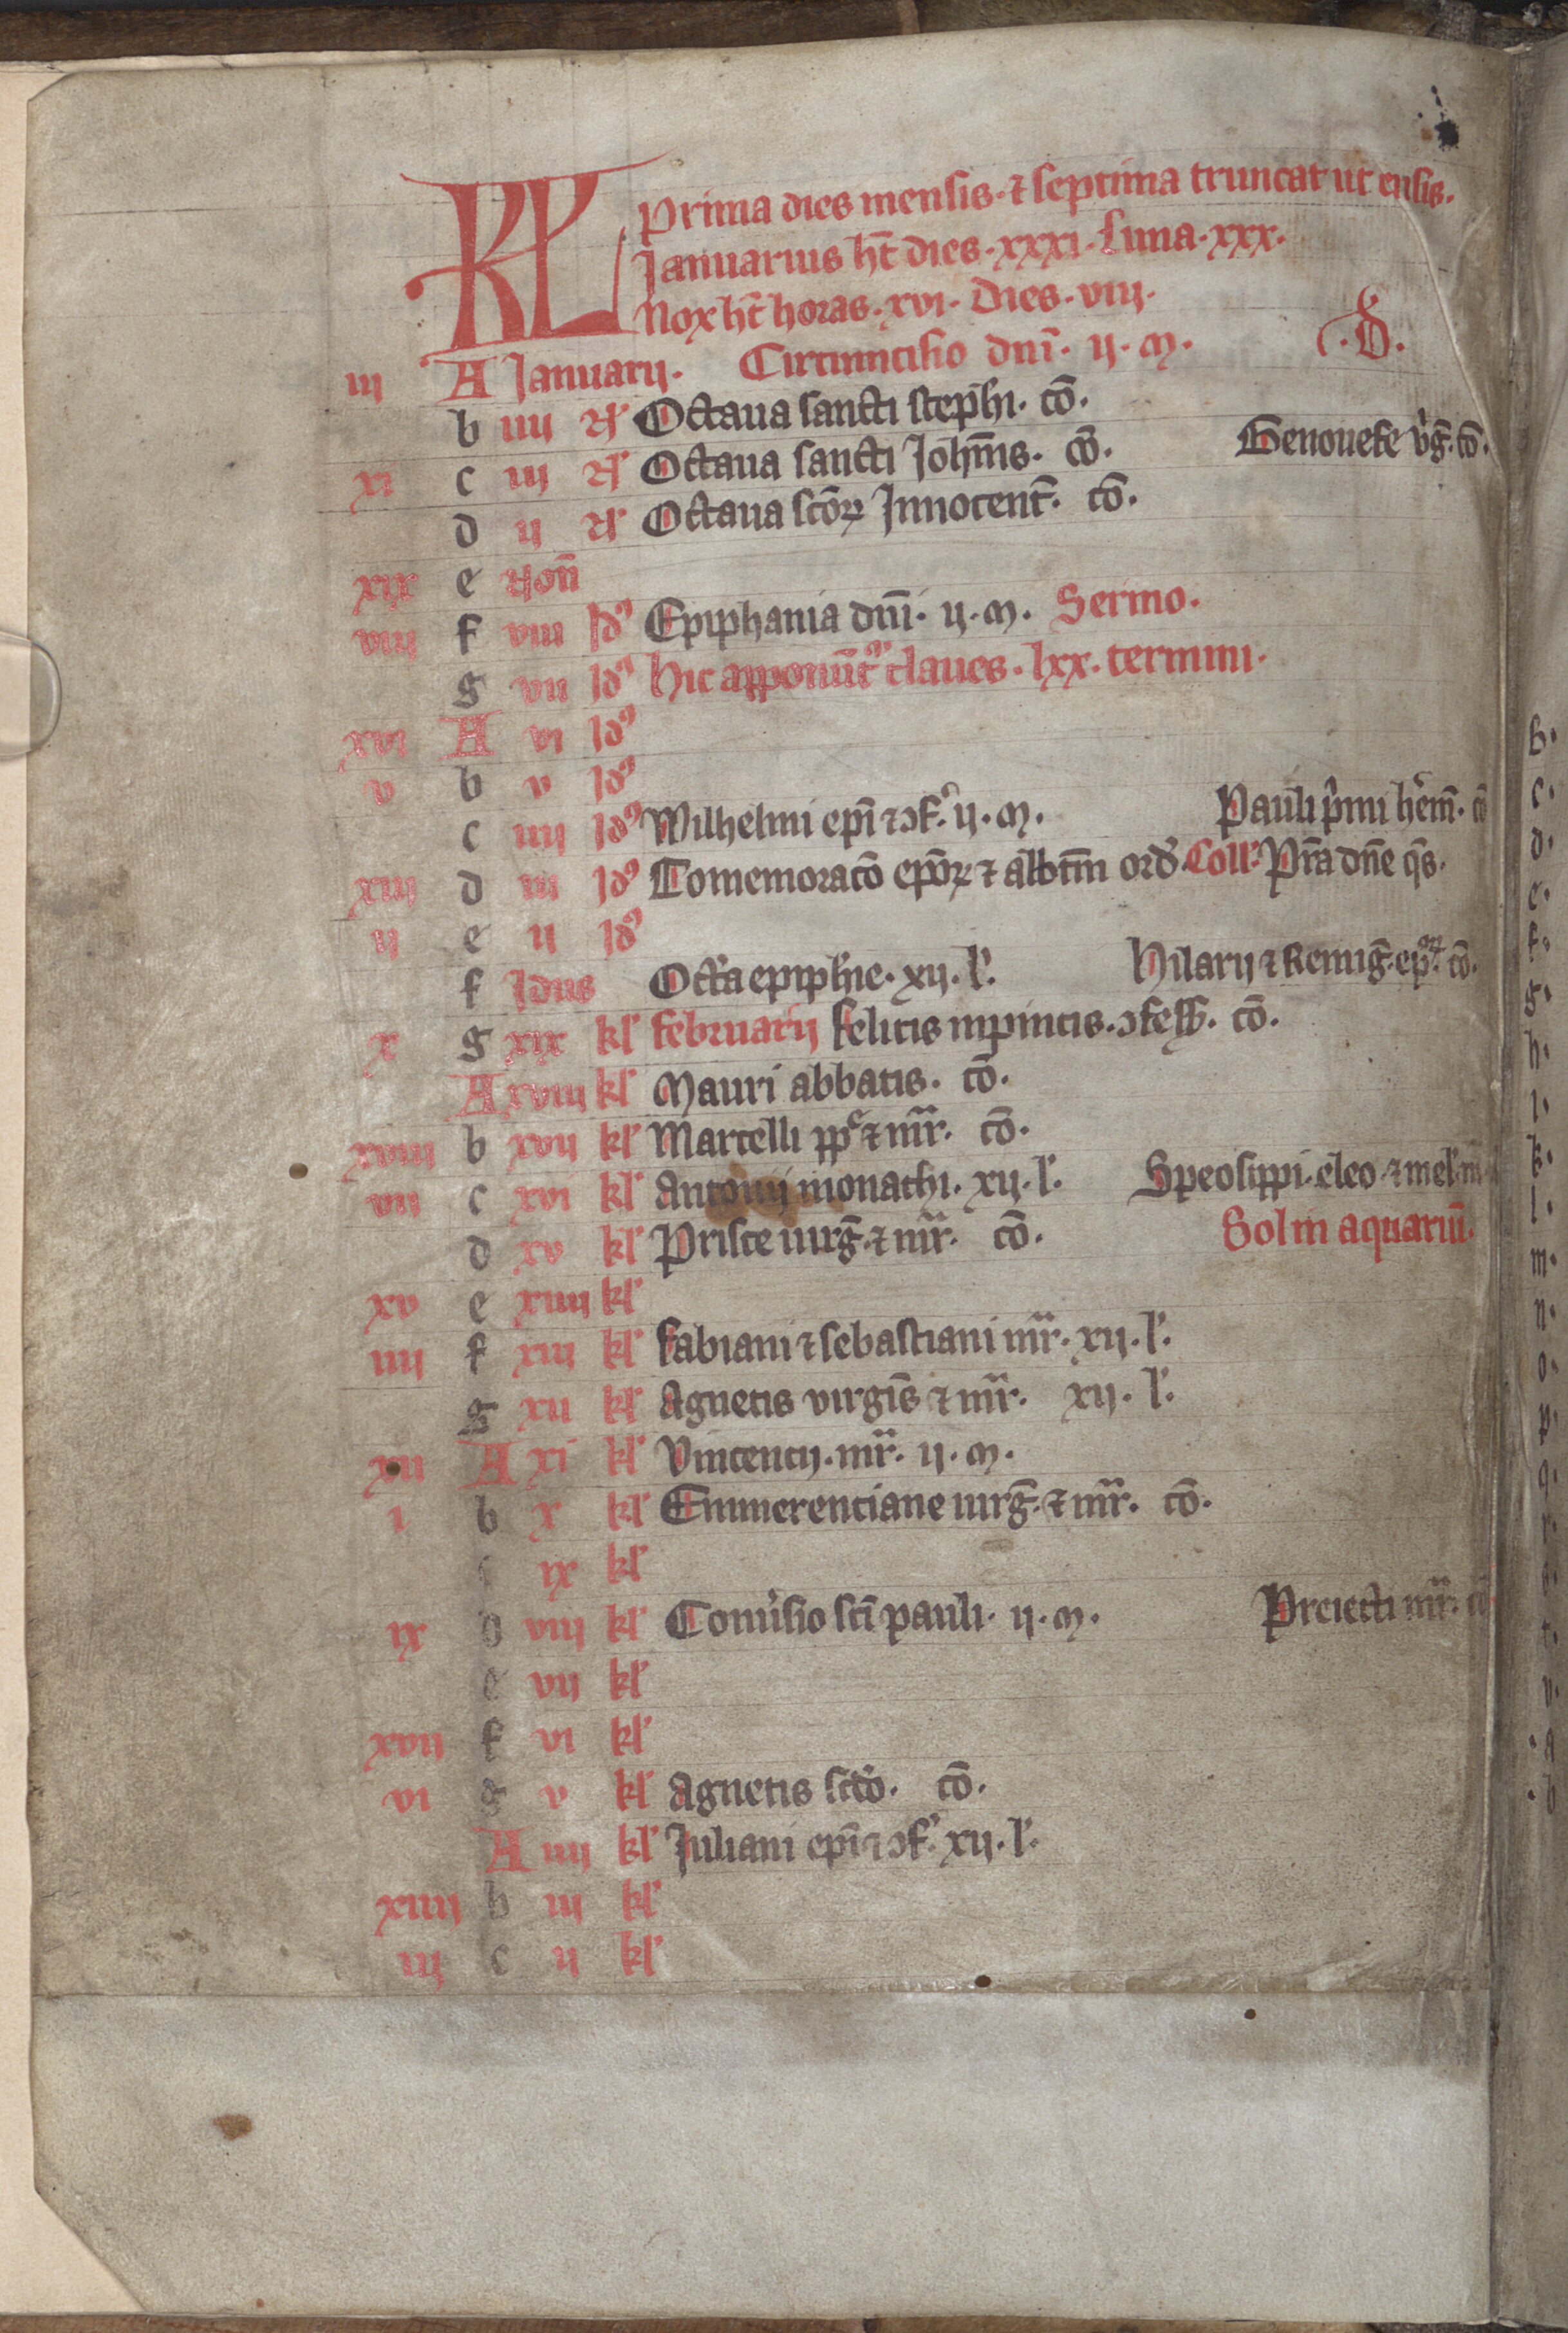 KL Prima dies mensis · ⁊ septima truncat ut ensis.
Januarius ht̄ dies · xxxi · luna · xxx.
Nox ht̄ horas · xvi · Dies · viij.
iij A Januarij. Circumcisio dn̄i · ij · m. · D.
b iiij N Octaua sancti steph̄i · cō.
xi c iij N Octaua sancti Joh̄nis · cō. Genouefe v̓ḡ · cō.
d ij N Octaua sc̄oꝝ Innocent̄ · cō.
xix e Non̄
viij f viij Idꝰ Epiphania dn̄i · ij · m. Sermo.
g vij Idꝰ Hic apponūt᷒ claues · lxx · termini.
xvi A vi Idꝰ
v b v Idꝰ
c iiij Idꝰ Wilhelmi ep̄i ⁊ ꝯf · ij · m. Pauli p̓mi h̓em̄ · cō
xiij d iij Idꝰ Comemoracō ep̄oꝝ ⁊ abb̄tm̄ ord̓ Coll̓ Pr̄a dn̄e qs̄.
ij e ij Idꝰ
f Idus Oct̓a epiph̄ie · xij · l̓. Hilarij ⁊ Remiḡ · ep̄oꝝ cō.
x g xix kl̓ februarij felicis inpincis · ꝯfess̄ · cō.
A xviij kl̓ Mauri abbatis · cō.
xviij b xvij kl̓ Marcelli pp̄ ⁊ mr̄r · cō.
vij c xvi kl̓ Antonij monachi · xij · l̓. Speosippi · eleo · ⁊ mel̓ · m
d xv kl̓ Prisce uirḡ · ⁊ mr̄r · cō. Sol in aquariū.
xv e xiiij kl̓
iiij f xiij kl̓ fabiani ⁊ sebastiani mr̄r · xij · l̓.
g xij kl̓ Agnetis virgīs ⁊ mr̄r · xij · l̓.
xij A xi kl̓ Vincencij · mr̄r · ij · m.
i b x kl̓ Emmerenciane uirḡ · ⁊ mr̄r · cō.
c ix kl̓
ix d viij kl̓ Conu̓sio sc̄i pauli · ij · m. Preiecti mr̄r · cō
e vij kl̓
xvij f vi kl̓
vi g v kl̓ Agnetis sc̄do · cō.
A iiij kl̓ Juliani ep̄i ⁊ ꝯf̓ · xij · l̓.
xiiij b iij kl̓
iij c ij kl̓